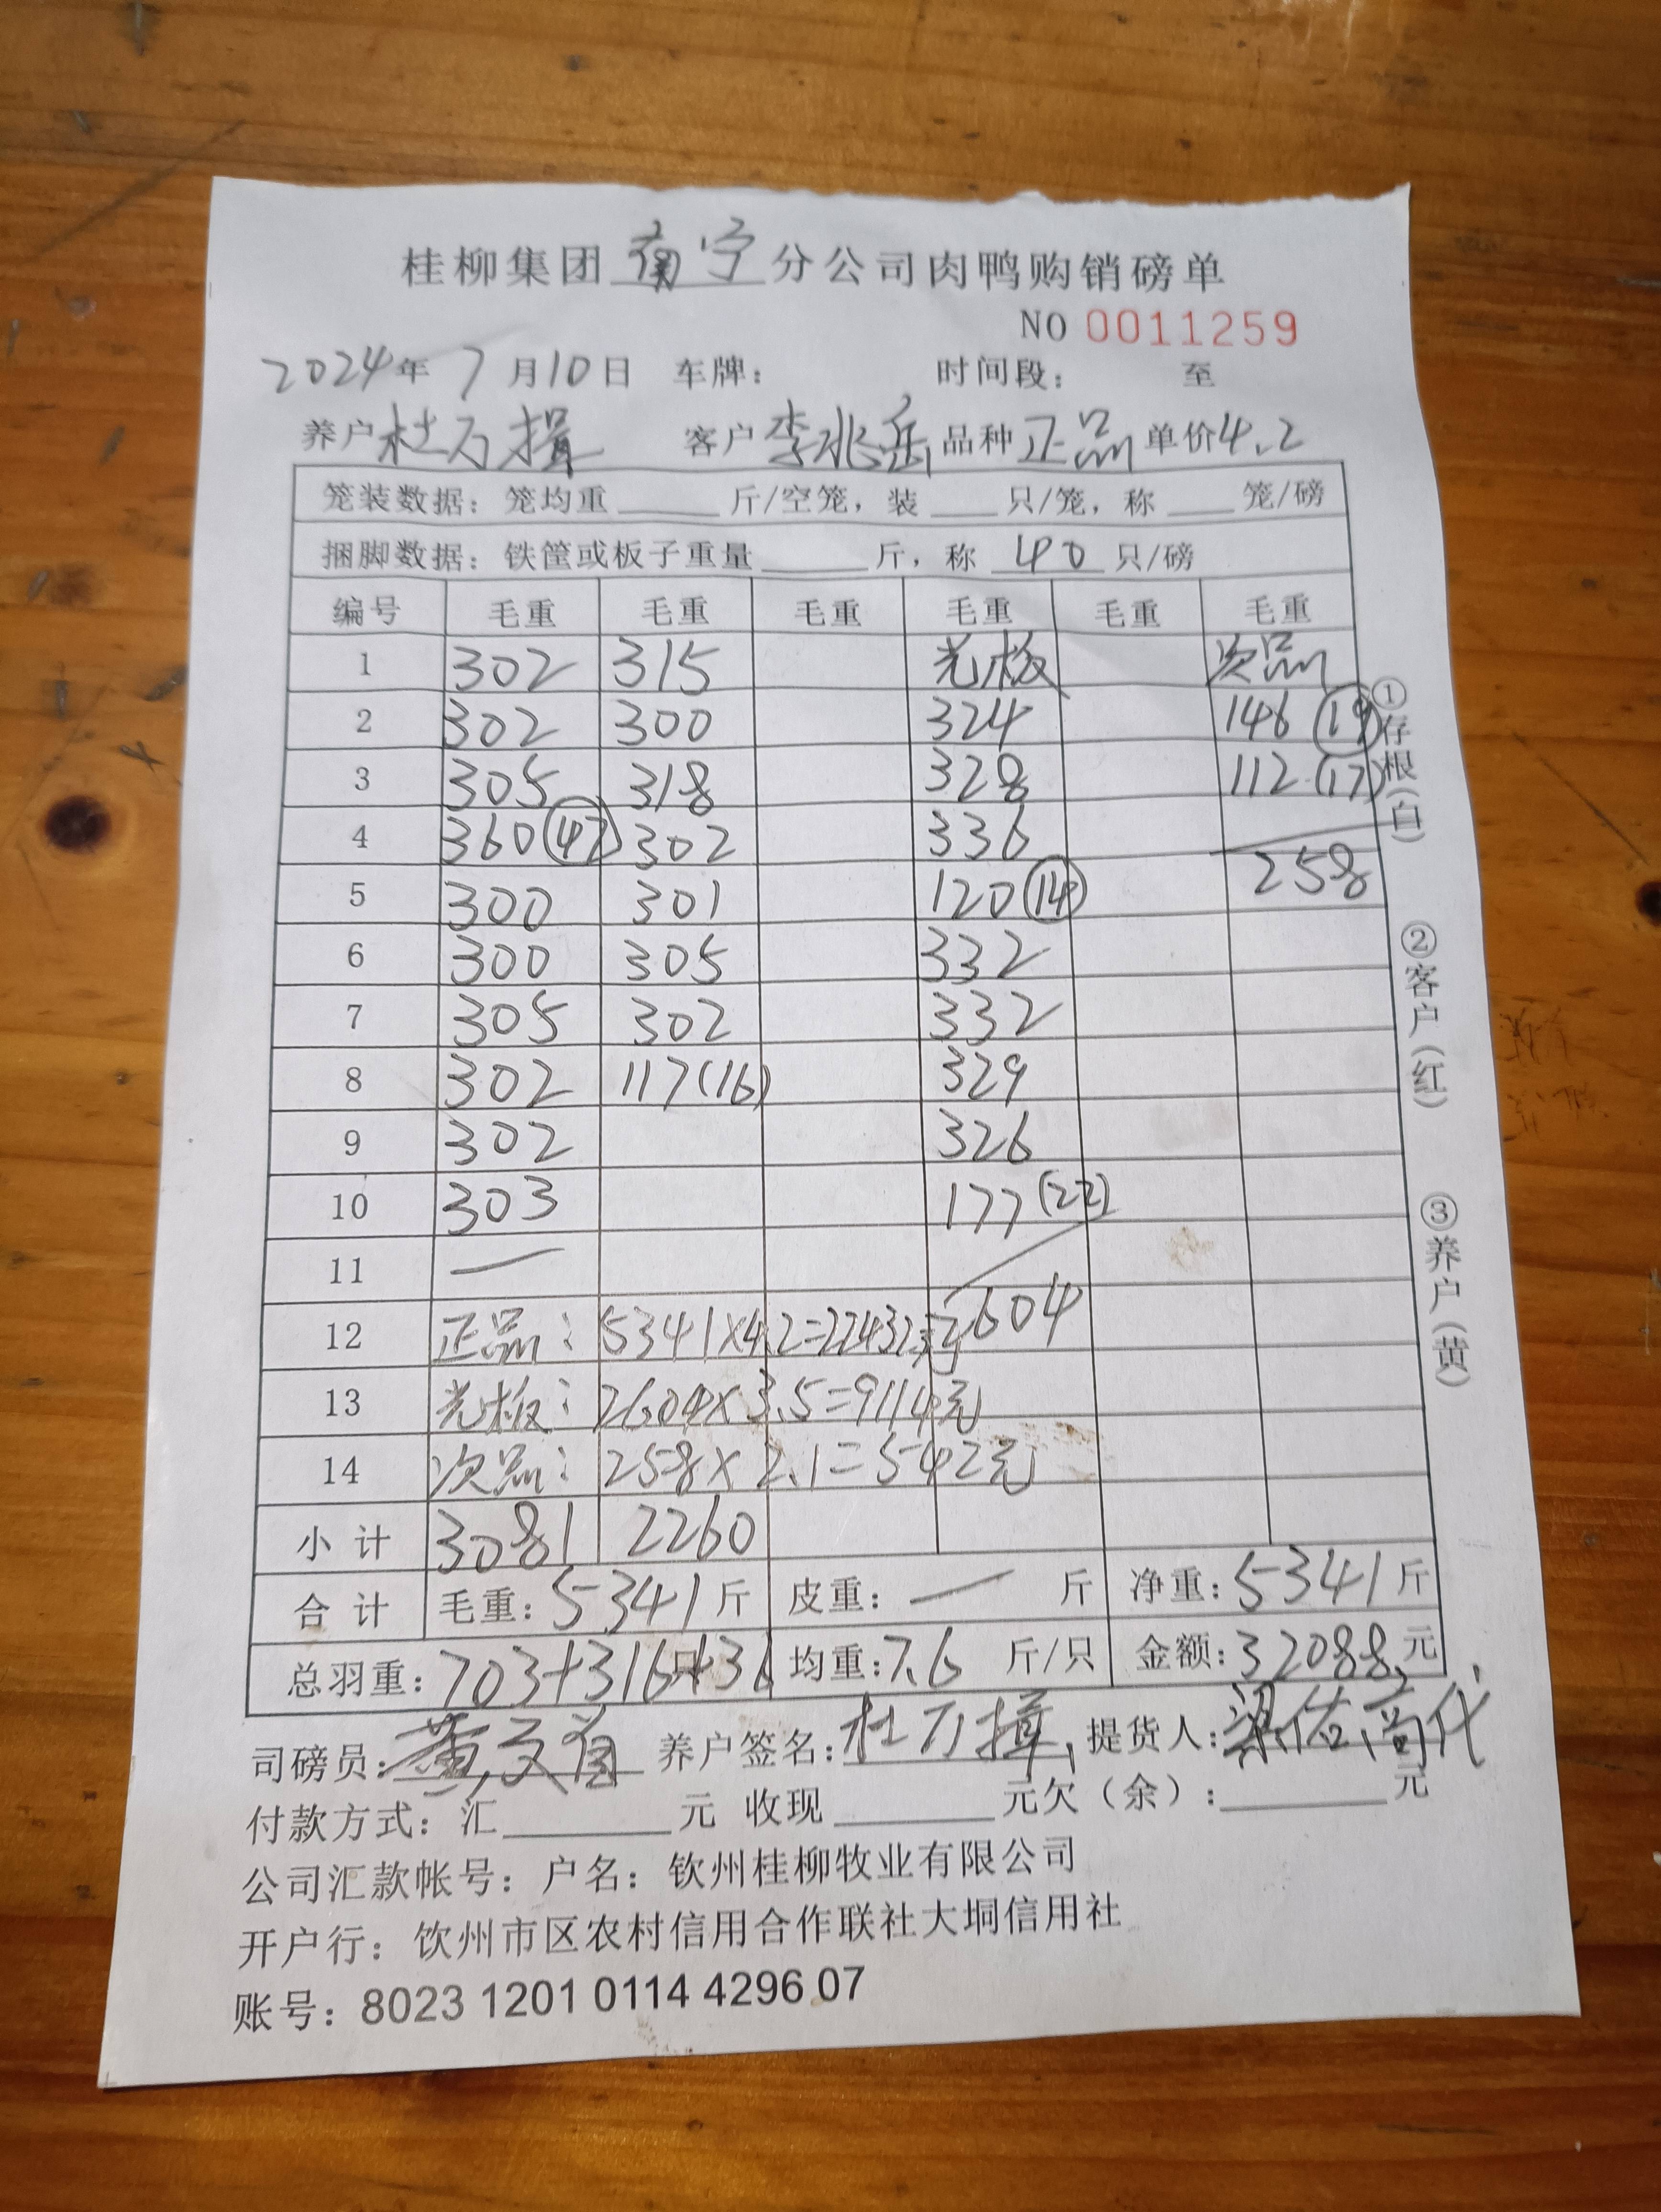 桂柳集团南宁分公司肉鸭购销磅单
NO 0011259
2024年7月10日 车牌： 时间段： 至
养户杜万揖 客户李兆岳 品种正品 单价4.2
笼装数据：笼均重 斤/空笼，装 只/笼，称 笼/磅
捆脚数据：铁筐或板子重量 斤，称 40 只/磅
编号 毛重 毛重 毛重 毛重 毛重 毛重
1 302 315 光板 次品
2 302 300 324 146 (19)
3 305 318 328 112 (17)
4 360 (47) 302 336
5 300 301 120 (14) 258
6 300 305 332
7 305 302 332
8 302 117 (16) 329
9 302 326
10 303 177 (22)
11 —
12 正品：5341×4.2=22432元 2604
13 光板：2604×3.5=9114元
14 次品：258×2.1=542元
小计 3081 2260
合计 毛重：5341斤 皮重：— 斤 净重：5341斤
总羽重：703+316+36只 均重：7.6 斤/只 金额：32088元
司磅员： 养户签名：杜万揖 提货人：
付款方式：汇 元 收现 元欠（余）： 元
公司汇款帐号：户名：钦州桂柳牧业有限公司
开户行：钦州市区农村信用合作联社大垌信用社
账号：8023 1201 0114 4296 07
①存根（白） ②客户（红） ③养户（黄）